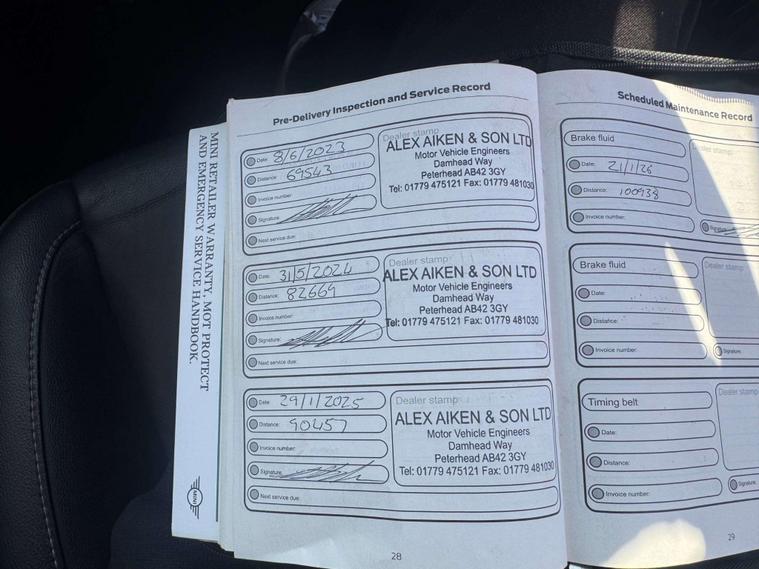 MINI RETAILER WARRANTY, MOT PROTECT
AND EMERGENCY SERVICE HANDBOOK.
MINI
Pre-Delivery Inspection and Service Record
Date: 8/6/2023
Distance: 69543
Invoice number:
Signature:
Next service due:
Dealer stamp
ALEX AIKEN & SON LTD
Motor Vehicle Engineers
Damhead Way
Peterhead AB42 3GY
Tel: 01779 475121 Fax: 01779 481030
Date: 31/5/2024
Distance: 82669
Invoice number:
Signature:
Next service due:
Dealer stamp
ALEX AIKEN & SON LTD
Motor Vehicle Engineers
Damhead Way
Peterhead AB42 3GY
Tel: 01779 475121 Fax: 01779 481030
Date: 29/1/2025
Distance: 90457
Invoice number:
Signature:
Next service due:
Dealer stamp
ALEX AIKEN & SON LTD
Motor Vehicle Engineers
Damhead Way
Peterhead AB42 3GY
Tel: 01779 475121 Fax: 01779 481030
28
Scheduled Maintenance Record
Brake fluid
Date: 21/1/26
Distance: 100938
Invoice number:
Dealer stamp
Signature:
Brake fluid
Date:
Distance:
Invoice number:
Dealer stamp
Signature:
Timing belt
Date:
Distance:
Invoice number:
Dealer stamp
Signature:
29